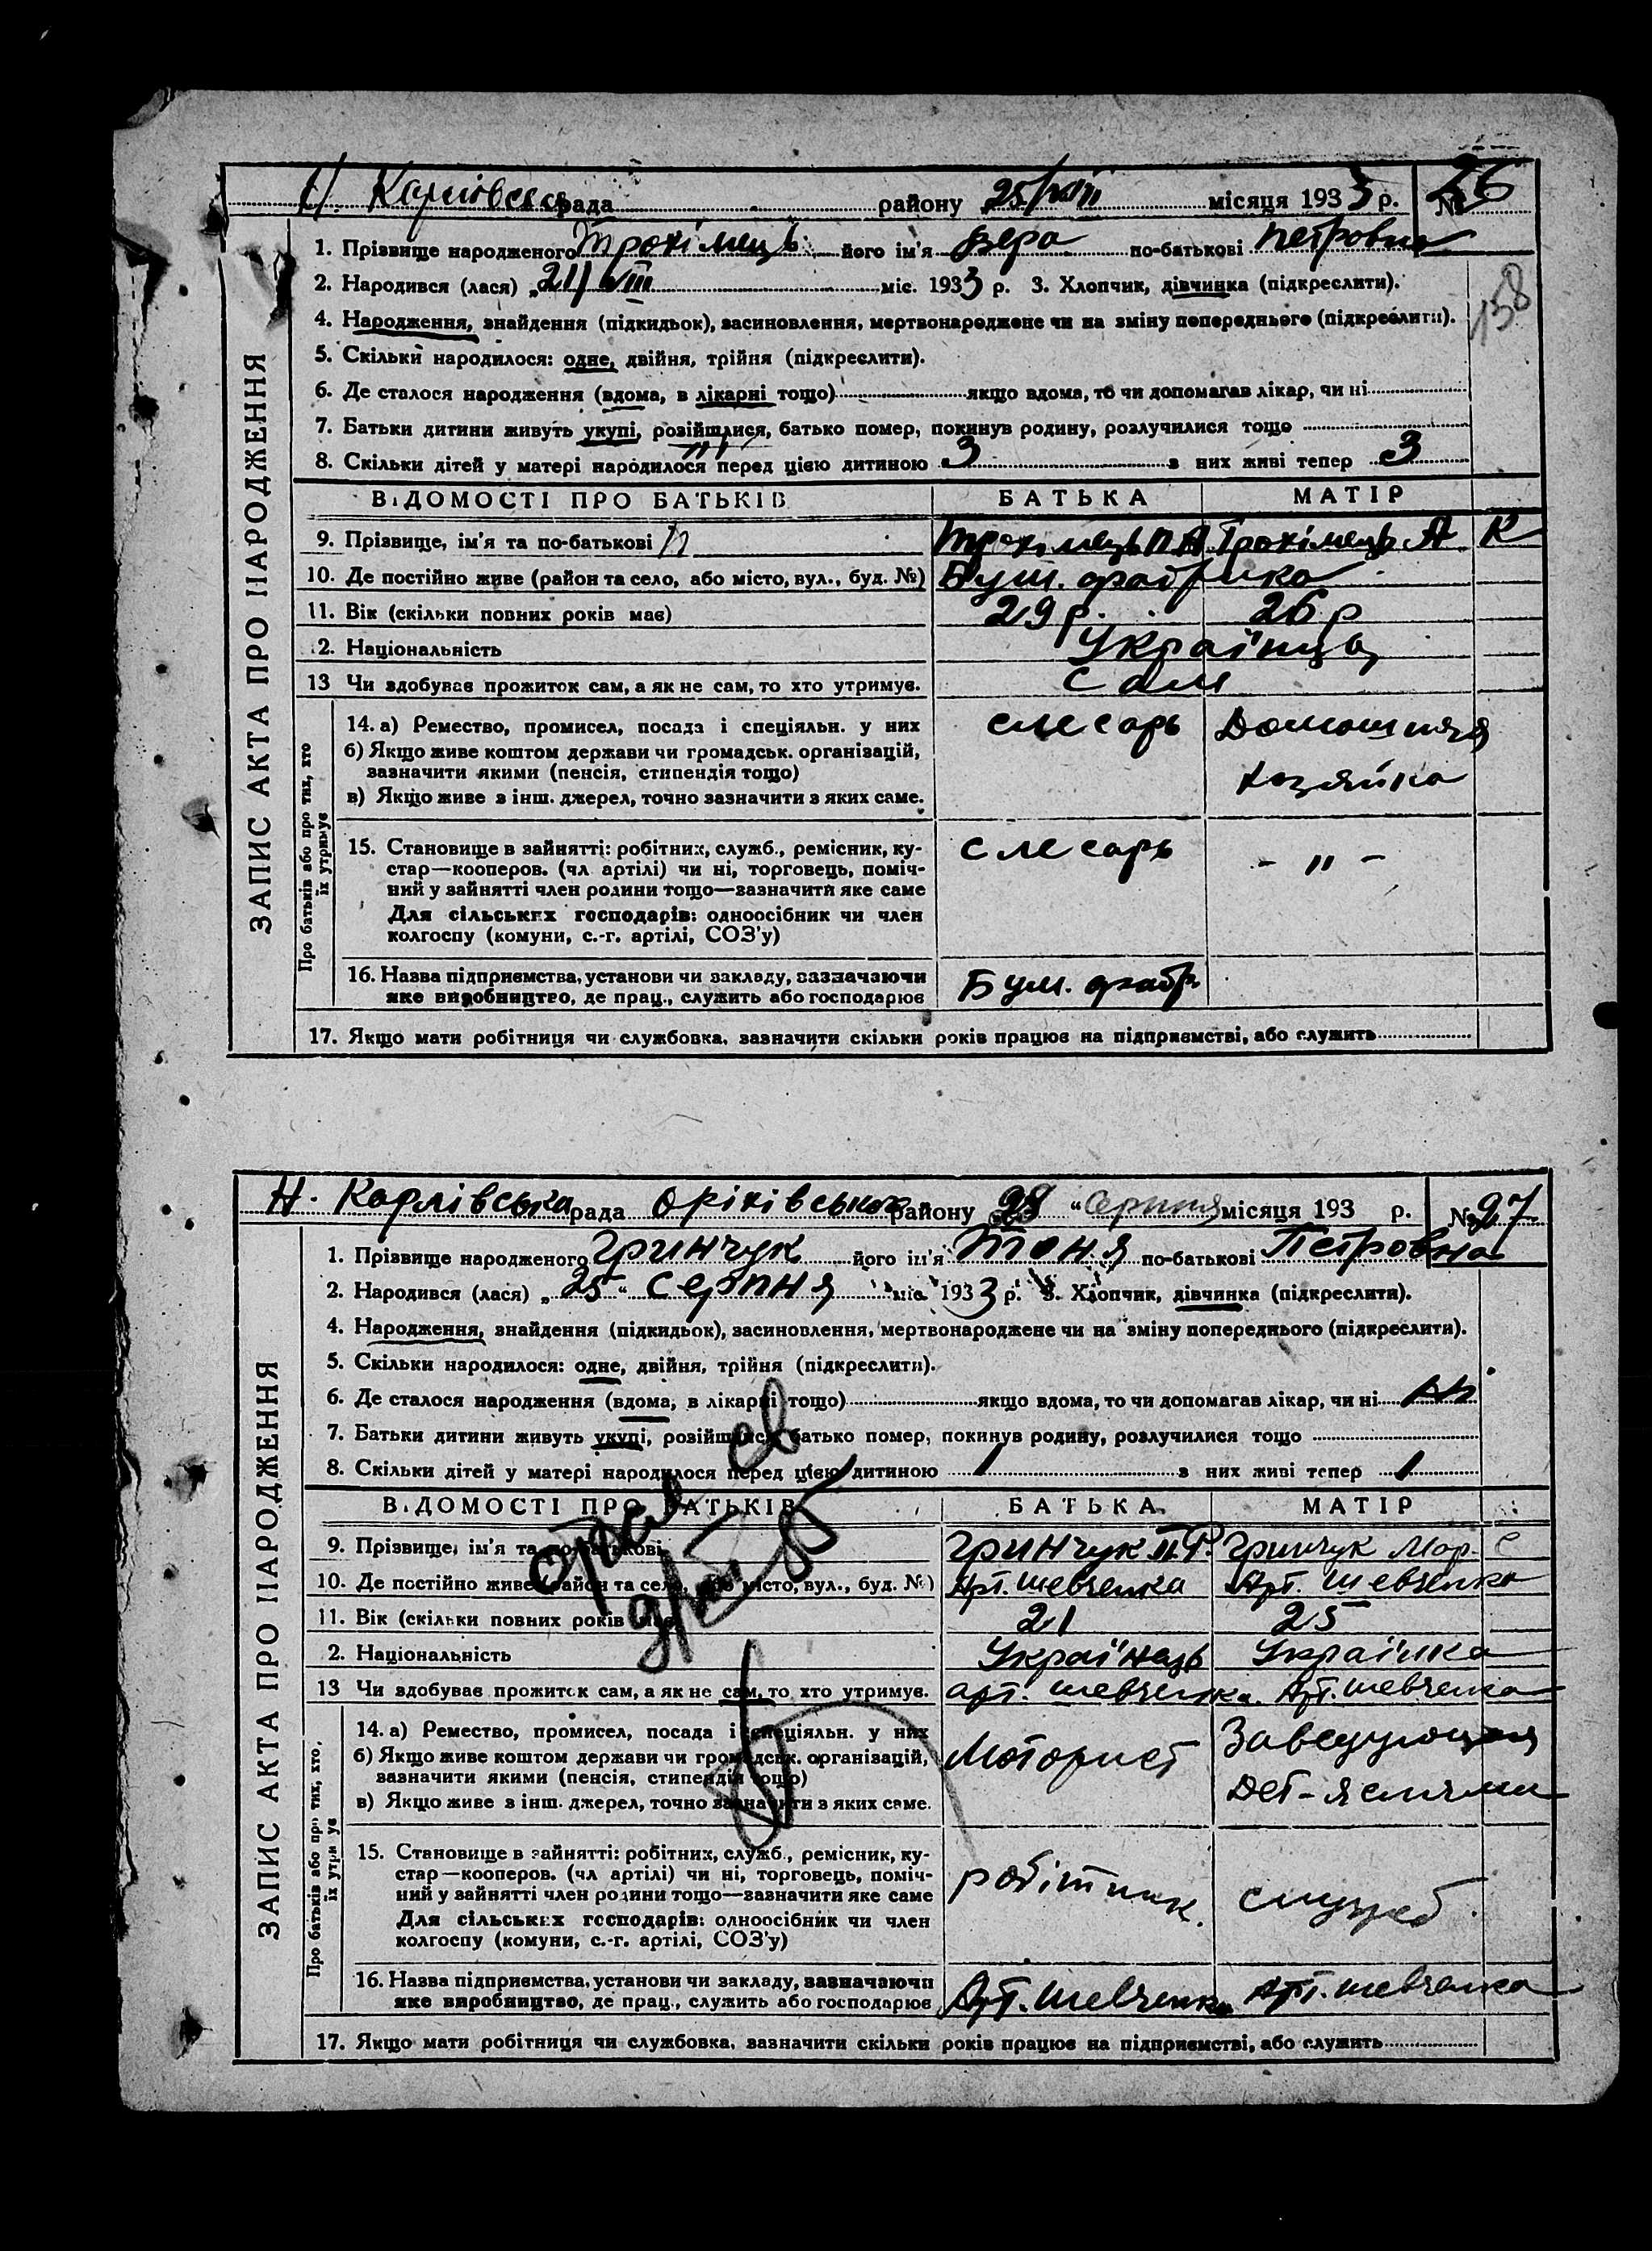 Н. Карлівська рада района 25/VIII місяця 1933 р. № 26
1. Прізвище народженого Трохімець його ім'я Вера по-батькові Петровна
2. Народився (лася) „21/VIII міс. 1933 р. 3. Хлопчик, дівчинка (підкреслити).
138
4. Народження, знайдення (підкидьок), засиновлення, мертвонароджене чи на зміну попереднього (підкреслити).
5. Скільки народилося: одне, двійня, трійня (підкреслити).
6. Де сталося народження (вдома, в лікарні тощо) якщо вдома, то чи допомагав лікар, чи ні
7. Батьки дитини живуть укупі, розійшлися, батько помер, покинув родину, розлучилися тощо
8. Скільки дітей у матері народилося перед цією дитиною 3 з них живі тепер 3
ЗАПИС АКТА ПРО НАРОДЖЕННЯ
ВІДОМОСТІ ПРО БАТЬКІВ БАТЬКА МАТІР
9. Прізвище, ім'я та по-батькові Трохімець П А Трохімець А К
10. Де постійно живе (район та село, або місто, вул., буд. №) Бум. фабрика
11. Вік (скільки повних років має) 29 р. 26 р
2. Національність Українца
13 Чи здобуває прожиток сам, а як не сам, то хто утримує. Сам
Про батьків або про тих, хто їх утримує
14. а) Ремество, промисел, посада і спеціяльн. у них слесарь Домашняя
б) Якщо живе коштом держави чи громадськ. організацій,
зазначити якими (пенсія, стипендія тощо) хозяйка
в) Якщо живе з інш. джерел, точно зазначити з яких саме.
15. Становище в зайнятті: робітник, служб., ремісник, ку- слесарь - " -
стар—кооперов. (чл артілі) чи ні, торговець, поміч-
ний у зайнятті член родини тощо—зазначити яке саме
Для сільських господарів: одноосібник чи член
колгоспу (комуни, с.-г. артілі, СОЗ'у)
16. Назва підприємства, установи чи закладу, зазначаючи Бум. фабр
яке виробництво, де прац., служить або господарює
17. Якщо мати робітниця чи службовка, зазначити скільки років працює на підприємстві, або служить
Н. Карлівська рада Оріхівського району 28 “ Серпня місяця 193 р. № 27
1. Прізвище народженого Гринчук його ім'я Тоня по-батькові Петровна
2. Народився (лася) „ 25 “ Серпня міс. 1933 р. 3. Хлопчик, дівчинка (підкреслити).
4. Народження, знайдення (підкидьок), засиновлення, мертвонароджене чи на зміну попереднього (підкреслити).
5. Скільки народилося: одне, двійня, трійня (підкреслити).
6. Де сталося народження (вдома, в лікарні тощо) якщо вдома, то чи допомагав лікар, чи ні
7. Батьки дитини живуть укупі, розійшлися, батько помер, покинув родину, розлучилися тощо
8. Скільки дітей у матері народилося перед цією дитиною 1 з них живі тепер 1
ЗАПИС АКТА ПРО НАРОДЖЕННЯ
ВІДОМОСТІ ПРО БАТЬКІВ БАТЬКА МАТІР
9. Прізвище, ім'я та по-батькові Гринчук П. Р. Гринчук Мар. С
10. Де постійно живе (район та село, або місто, вул., буд. №) Арт. Шевченка Арт. Шевченка
11. Вік (скільки повних років має) 21 25
2. Національність Українець Українка
13 Чи здобуває прожиток сам, а як не сам, то хто утримує. арт. Шевченка. Арт. Шевченка
Про батьків або про тих, хто їх утримує
14. а) Ремество, промисел, посада і спеціяльн. у них Моторист Заведующая
б) Якщо живе коштом держави чи громадськ. організацій,
зазначити якими (пенсія, стипендія тощо) Дет-яслями
в) Якщо живе з інш. джерел, точно зазначити з яких саме.
15. Становище в зайнятті: робітник, служб., ремісник, ку- робітник. служб.
стар—кооперов. (чл артілі) чи ні, торговець, поміч-
ний у зайнятті член родини тощо—зазначити яке саме
Для сільських господарів: одноосібник чи член
колгоспу (комуни, с.-г. артілі, СОЗ'у)
16. Назва підприємства, установи чи закладу, зазначаючи Арт. Шевченка Арт. Шевченка
яке виробництво, де прац., служить або господарює
17. Якщо мати робітниця чи службовка, зазначити скільки років працює на підприємстві, або служить